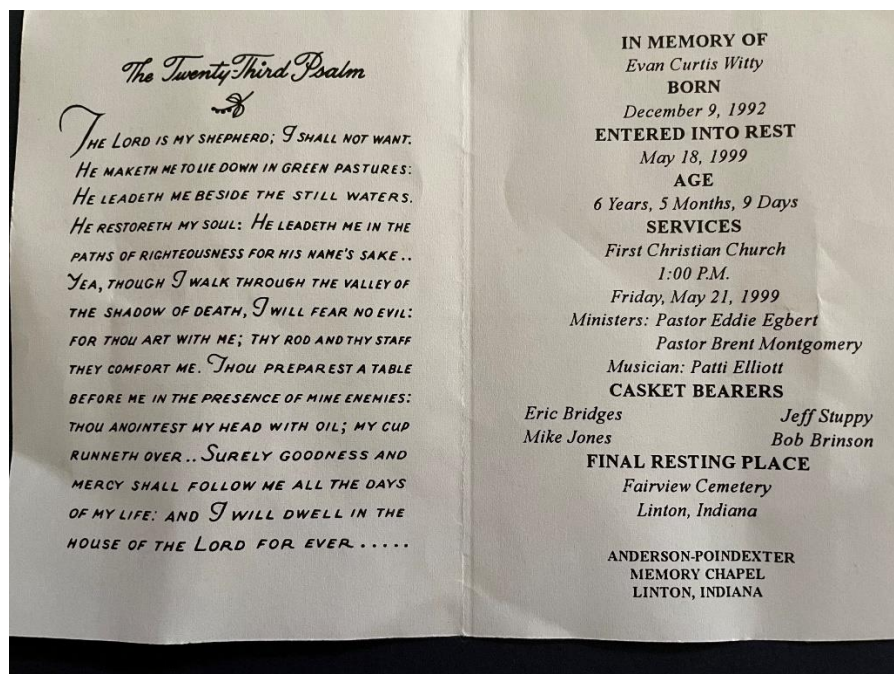 The Twenty-Third Psalm
THE LORD IS MY SHEPHERD; I SHALL NOT WANT.
HE MAKETH ME TO LIE DOWN IN GREEN PASTURES:
HE LEADETH ME BESIDE THE STILL WATERS.
HE RESTORETH MY SOUL: HE LEADETH ME IN THE
PATHS OF RIGHTEOUSNESS FOR HIS NAME'S SAKE..
YEA, THOUGH I WALK THROUGH THE VALLEY OF
THE SHADOW OF DEATH, I WILL FEAR NO EVIL:
FOR THOU ART WITH ME; THY ROD AND THY STAFF
THEY COMFORT ME. THOU PREPAREST A TABLE
BEFORE ME IN THE PRESENCE OF MINE ENEMIES:
THOU ANOINTEST MY HEAD WITH OIL; MY CUP
RUNNETH OVER.. SURELY GOODNESS AND
MERCY SHALL FOLLOW ME ALL THE DAYS
OF MY LIFE: AND I WILL DWELL IN THE
HOUSE OF THE LORD FOR EVER.....
IN MEMORY OF
Evan Curtis Witty
BORN
December 9, 1992
ENTERED INTO REST
May 18, 1999
AGE
6 Years, 5 Months, 9 Days
SERVICES
First Christian Church
1:00 P.M.
Friday, May 21, 1999
Ministers: Pastor Eddie Egbert
Pastor Brent Montgomery
Musician: Patti Elliott
CASKET BEARERS
Eric Bridges Jeff Stuppy
Mike Jones Bob Brinson
FINAL RESTING PLACE
Fairview Cemetery
Linton, Indiana
ANDERSON-POINDEXTER
MEMORY CHAPEL
LINTON, INDIANA